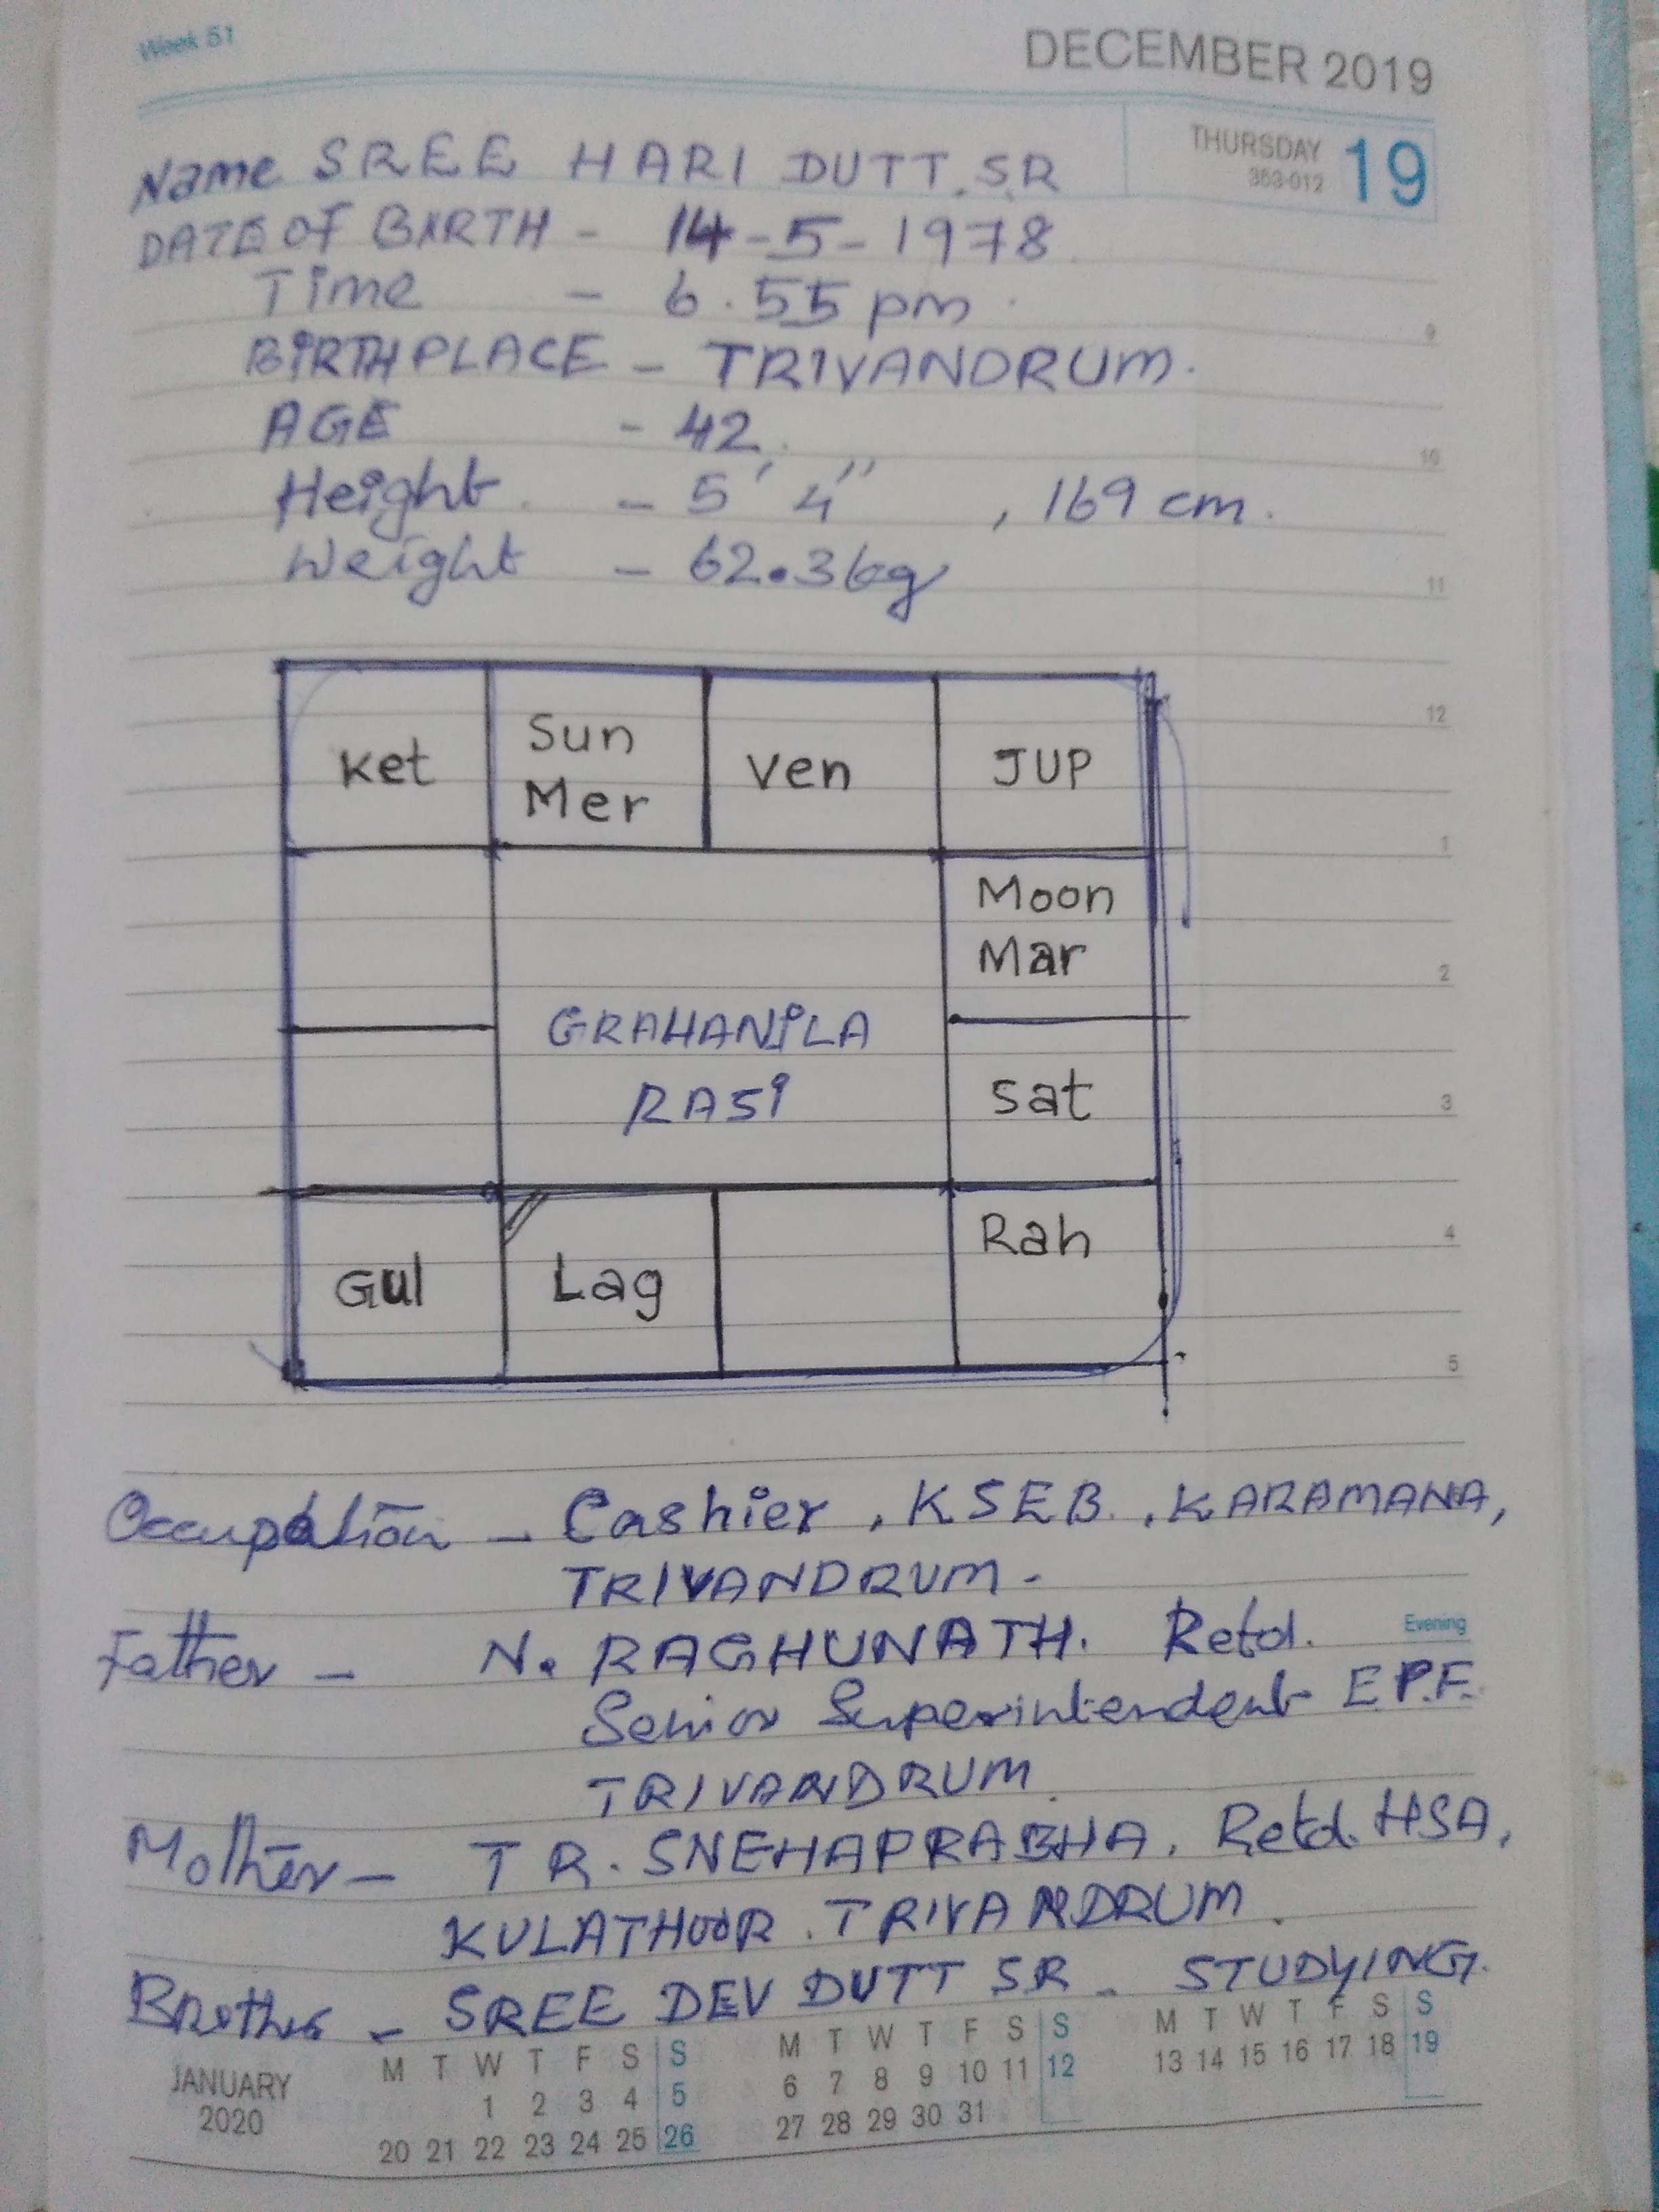 Week 51
DECEMBER 2019
THURSDAY
353-012
19
Name SREE HARI DUTT. S.R
DATE OF BIRTH - 14-5-1978
Time - 6.55 pm
BIRTHPLACE - TRIVANDRUM.
AGE - 42
Height - 5' 4" , 169 cm.
Weight - 62.3kg
Ket
Sun
Mer
Ven
JUP
Moon
Mar
GRAHANILA
RASI
Sat
Gul
Lag
Rah
9
10
11
12
1
2
3
4
5
Occupation - Cashier, KSEB., KARAMANA,
TRIVANDRUM -
Father - N. RAGHUNATH. Retd.
Evening
Senior Superintendent E.P.F.
TRIVANDRUM
Mother - T R. SNEHAPRABHA, Retd. HSA,
KULATHOOR. TRIVANDRUM.
Brother - SREE DEV DUTT S.R - STUDYING.
JANUARY
2020
M T W T F S S
1 2 3 4 5
20 21 22 23 24 25 26
M T W T F S S
6 7 8 9 10 11 12
27 28 29 30 31
M T W T F S S
13 14 15 16 17 18 19